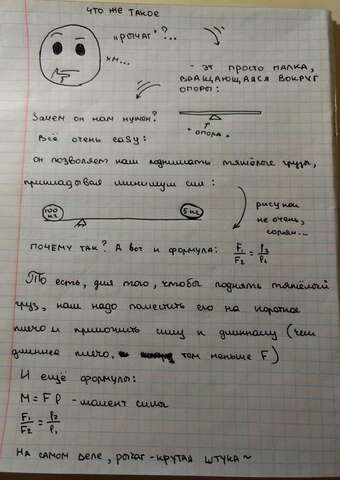 что же такое
„рычаг"?...
хм...
- эт просто палка,
вращающаяся вокруг
опоры:
Зачем он нам нужен?
"опора"
Всё очень easy:
он позволяет нам поднимать тяжёлые груза,
прикладывая минимум сил:
100 кг
5 кг
рисунок
не очень,
сорян...
почему так? А вот и формула: F₁/F₂ = l₂/l₁
То есть, для того, чтобы поднять тяжёлый
груз, нам надо поместить его на короткое
плечо и приложить силу к длинному (чем
длиннее плечо, тем меньше F)
И ещё формулы:
M = F l - момент силы
F₁/F₂ = l₂/l₁
На самом деле, рычаг - крутая штука~